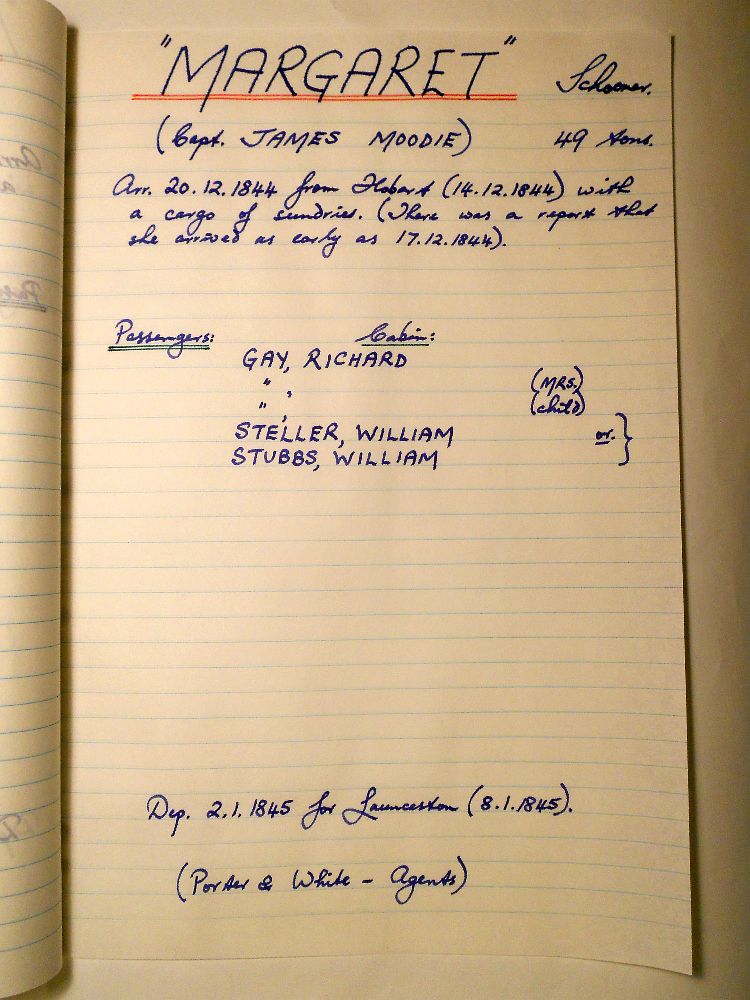 "MARGARET" Schooner.
(Capt. JAMES MOODIE) 49 tons.
Arr. 20.12.1844 from Hobart (14.12.1844) with
a cargo of sundries. (There was a report that
she arrived as early as 17.12.1844).
Passengers: Cabin:
GAY, RICHARD
" , (MRS.)
" , (child)
STELLER, WILLIAM or. }
STUBBS, WILLIAM
Dep. 2.1.1845 for Launceston (8.1.1845).
(Porter & White - Agents)